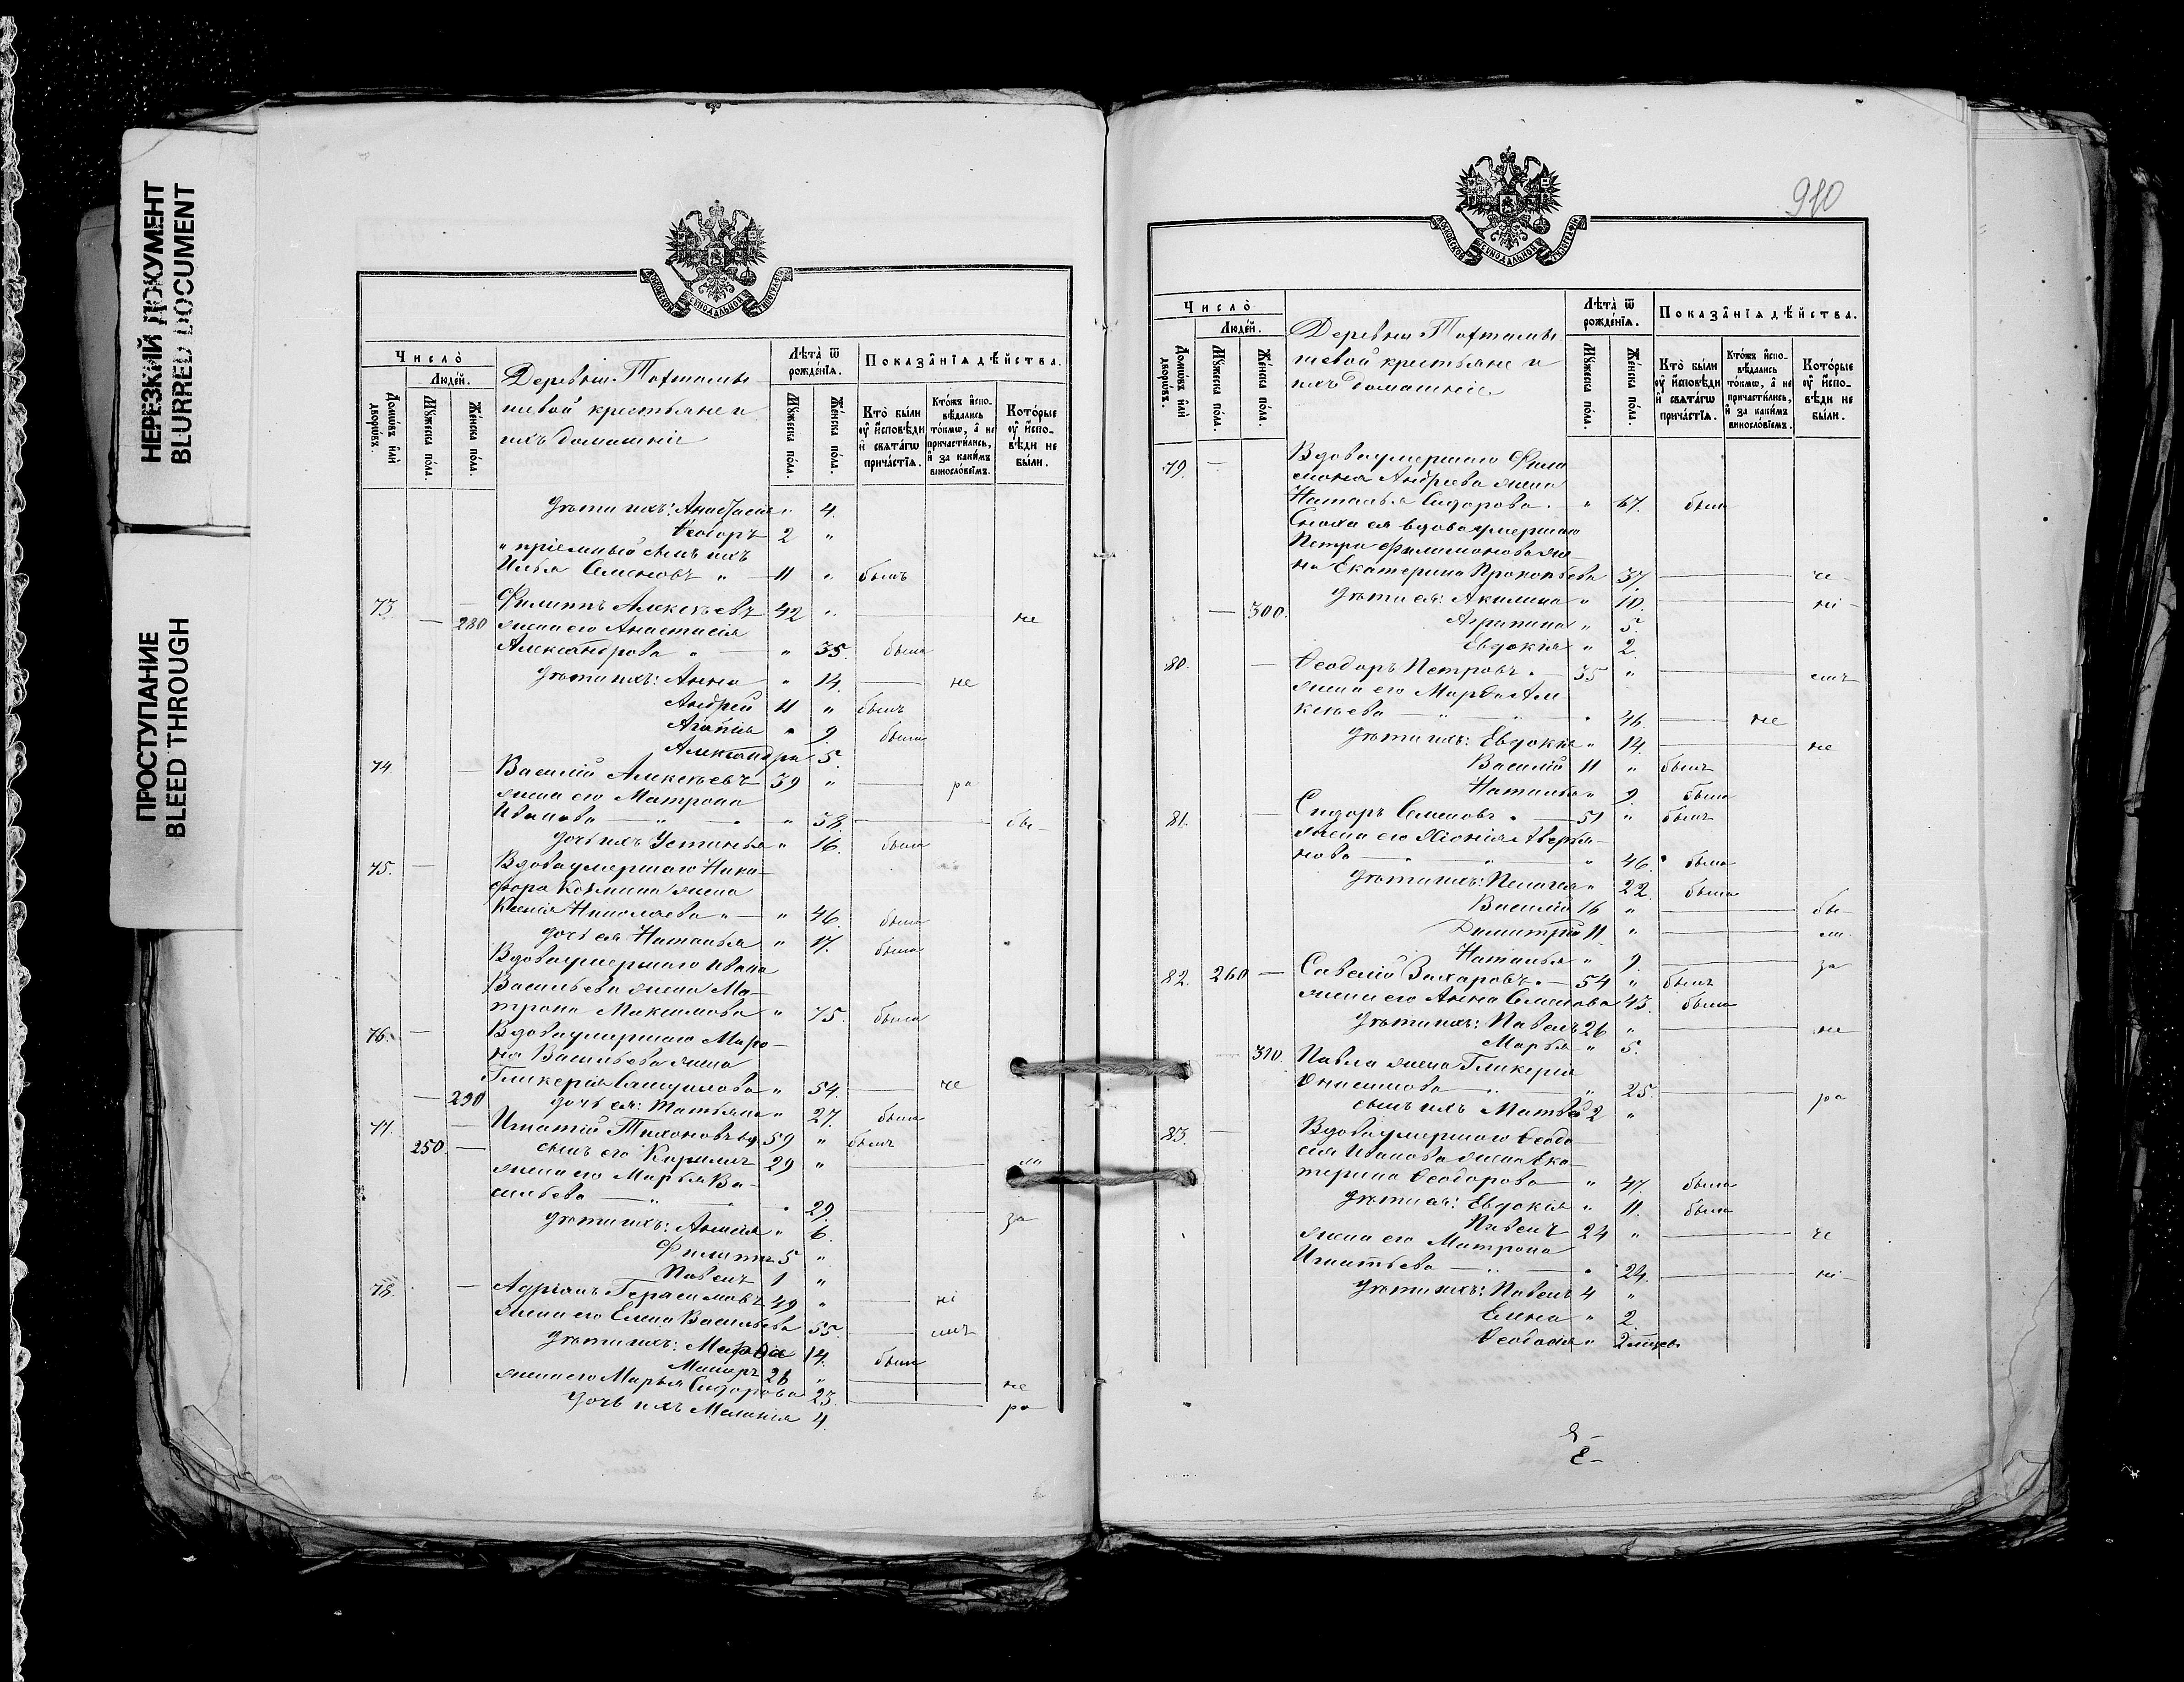 НЕРЕЗКИЙ ДОКУМЕНТ
BLURRED DOCUMENT
ПРОСТУПАНИЕ
BLEED THROUGH
МОСКОВСКОЙ СѴНОДАЛЬНОЙ ТИПОГРАФІИ
Число̀
Люде́й.
Домѡ́въ и҆лѝ дворѡ́въ.
Мꙋ́жеска по́ла.
Же́нска по́ла.
Деревни Тохтамы-
шевой крестьяне и
ихъ домашніе
Лѣта̀ ѿ рожде́нїѧ.
Мꙋ́жеска по́ла.
Же́нска по́ла.
Показа̑нїѧ дѣ́йства.
Кто̀ бы́ли ᲂу҆ и҆́сповѣди и҆ свѧта́гѡ прича́стїѧ.
Кто́жъ и҆спо­вѣ́дались то́кмѡ, а҆ не причасти́лись, и҆ за каки́мъ винослѡ́вїемъ.
Кото́рые ᲂу҆ и҆́спо­вѣди не бы́ли.
Дѣти ихъ: Анастасія " 4.
Ѳеодоръ 2 "
" пріемный сынъ ихъ
Илья Семеновъ " — 11 " былъ
73. — Филиппъ Алексѣевъ 42 " — не
— 280 жена его Анастасія
Александрова " — " 35. была
Дѣти ихъ: Анна " 14. — не
Андрей 11 " былъ
Агаѳія " 9 была
Александра 5.
74. — Василій Алексѣевъ 39 " — ра
жена его Матрона
Иванова — " — " 58. — бы-
дочь ихъ Устинья " 16. была
75. — Вдова умершаго Ники-
фора Козмина жена
Ксенія Николаева " — " 46. была
дочь ея Наталья " 17. была
Вдова умершаго Ивана
Васильева жена Ма-
трона Максимова " 75. была
76. — Вдова умершаго Миро-
на Васильева жена
Гликерія " 54. — че
— 290 дочь ея: Татьяна " 27. была
77. — Игнатій Тихоновъ вд. 59 " былъ
250. — сынъ его Кириллъ 29 " — ли
жена его Марья Ва-
сильева — " " 29. — за
дѣти ихъ: Анисія " 6.
Филиппъ 5 "
Павелъ 1 "
78. — Адріанъ Герасимовъ 49 " — ні
жена его Елена Васильева 55. — емъ
дѣти ихъ: Марѳа 14. была
26 " — не
жена его Марья Сидорова 23. — ра
дочь ихъ Меланія 4.
910
МОСКОВСКОЙ СѴНОДАЛЬНОЙ ТИПОГРАФІИ
Число̀
Люде́й.
Домѡ́въ и҆лѝ дворѡ́въ.
Мꙋ́жеска по́ла.
Же́нска по́ла.
Деревни Тохтамы-
шевой крестьяне и
ихъ домашніе
Лѣта̀ ѿ рожде́нїѧ.
Мꙋ́жеска по́ла.
Же́нска по́ла.
Показа̑нїѧ дѣ́йства.
Кто̀ бы́ли ᲂу҆ и҆́сповѣди и҆ свѧта́гѡ прича́стїѧ.
Кто́жъ и҆спо­вѣ́дались то́кмѡ, а҆ не причасти́лись, и҆ за каки́мъ винослѡ́вїемъ.
Кото́рые ᲂу҆ и҆́спо­вѣди не бы́ли.
79. — Вдова умершаго Фили-
мона Андреева жена
Наталья Сидорова " " 67. была
Сноха ея вдова умершаго
Петра Филимонова же-
на Екатерина Прокопьева 37. — че-
дѣти ея: Акилина " 10. — ні-
— 300. Агрипина " 5.
Евдокія " 2.
80. — Ѳеодоръ Петровъ " — 35 " — емъ
жена его Марѳа Але-
ксѣева — " — " " 46. — не
дѣти ихъ: Евдокія " 14. — не
Василій 11 " былъ
Наталья " 9. была
81. — Сидоръ Семеновъ " — 51 " былъ
жена его Хіонія Аверья-
нова — " — " 46. была
дѣти ихъ: Пелагея " 22. была
Василій 16 " — бы-
Димитрій 11 " — ли-
Наталья " 9. — за
82. 260 — Савелій Захаровъ " — 54 " былъ
жена его Анна Семенова 43. была
дѣти ихъ: Павелъ 26 " — не
Марья " 5.
— 310. Павла жена Гликерія
Онисимова — " " 25. — ра
сынъ ихъ Матвей 2 "
83. — Вдова умершаго Ѳеодо-
сія Иванова жена Ека-
терина Ѳеодорова — " 47. была
Дѣти ея: Евдокія " 11. была
Павелъ 24 " — че
жена его Матрона
Игнатьева — " — " 24. — ні-
дѣти ихъ: Павелъ 4 "
Елена " 2.
Ѳеодосія " 2 мѣсяц.